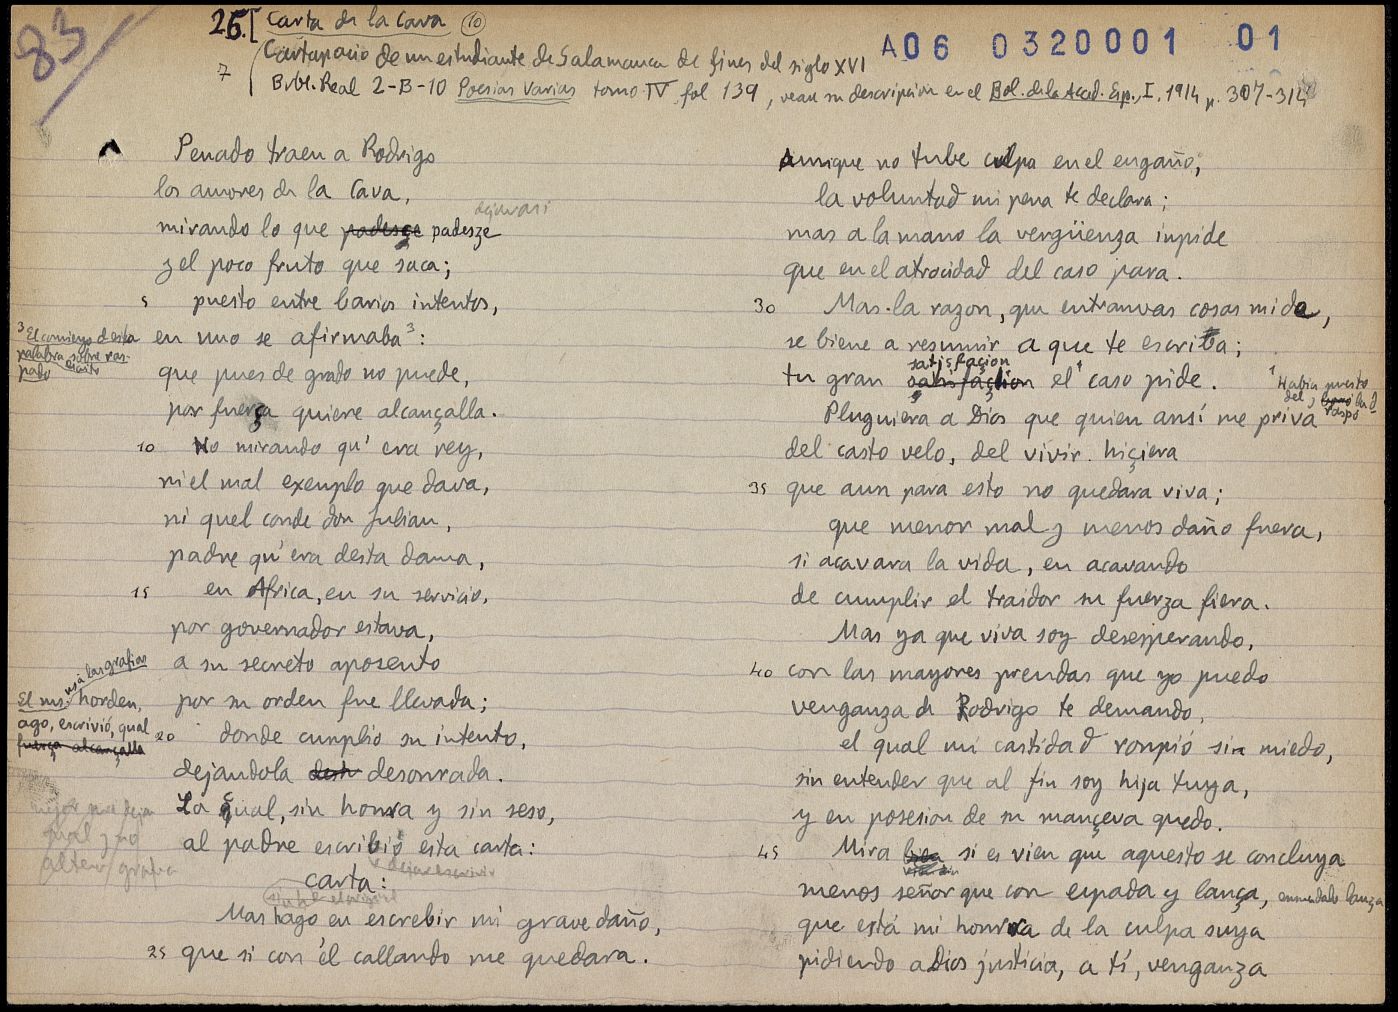 83
25. [ Carta de la Cava (10)
A06 0320001 01
7 Cartapacio de un estudiante de Salamanca de fines del siglo XVI
Bibl. Real 2-B-10 Poesías Varias tomo IV fol 139, vease su descripción en el Bol. de la Acad. Esp., I, 1914 p. 307-314
Penado traen a Rodrigo
los amores de la Cava,
dejar asi
mirando lo que padesçe padesze
y el poco fruto que saca;
5 puesto entre barios intentos,
en uno se afirmaba³:
³ El comienzo desta
palabra sobre ras-
pado escrito
que pues de grado no puede,
por fuerça quiere alcançalla.
10 No mirando qu' era rey,
ni el mal exenplo que dava,
ni quel conde don Julian,
padre qu' era desta dama,
15 en Africa, en su servicio,
por governador estava,
a su secreto aposento
por su orden fue llevada;
El ms. usa las grafias horden,
ago, escrivió, qual
fuerça alcançalla
20 donde cunplio su intento,
dejandola desh desonrada.
La qual, sin honrra y sin seso,
al padre escribió esta carta:
dejar escrivir
carta:
Mas hago en escrebir mi grave daño,
25 que si con él callando me quedara.
Aunque no tube culpa en el engaño,
la voluntad mi pena te declara;
mas a la mano la vergüenza inpide
que en el atrocidad del caso para.
30 Mas la razon, que entranvas cosas mide,
se biene a resumir a que te escriba;
satisfaçion
tu gran satisfaçtion el¹ caso pide.
¹ Habia puesto
del, y la d
raspó
Pluguiera a Dios que quien ansí me priva
del casto velo, del vivir hiçiera
35 que aun para esto no quedara viva;
que menor mal y menos daño fuera,
si acavara la vida, en acavando
de cumplir el traidor su fuerza fiera.
Mas ya que viva soy desesperando,
40 con las mayores prendas que yo puedo
venganza de Rodrigo te demando,
el qual mi castidad ronpió sin miedo,
sin entender que al fin soy hija tuya,
y en posesion de su mançeva quedo.
45 Mira bien si es vien que aquesto se concluya
menos señor que con espada y lança, enmendado lanza
que está mi honrra de la culpa suya
pidiendo a Dios justicia, a tí, venganza